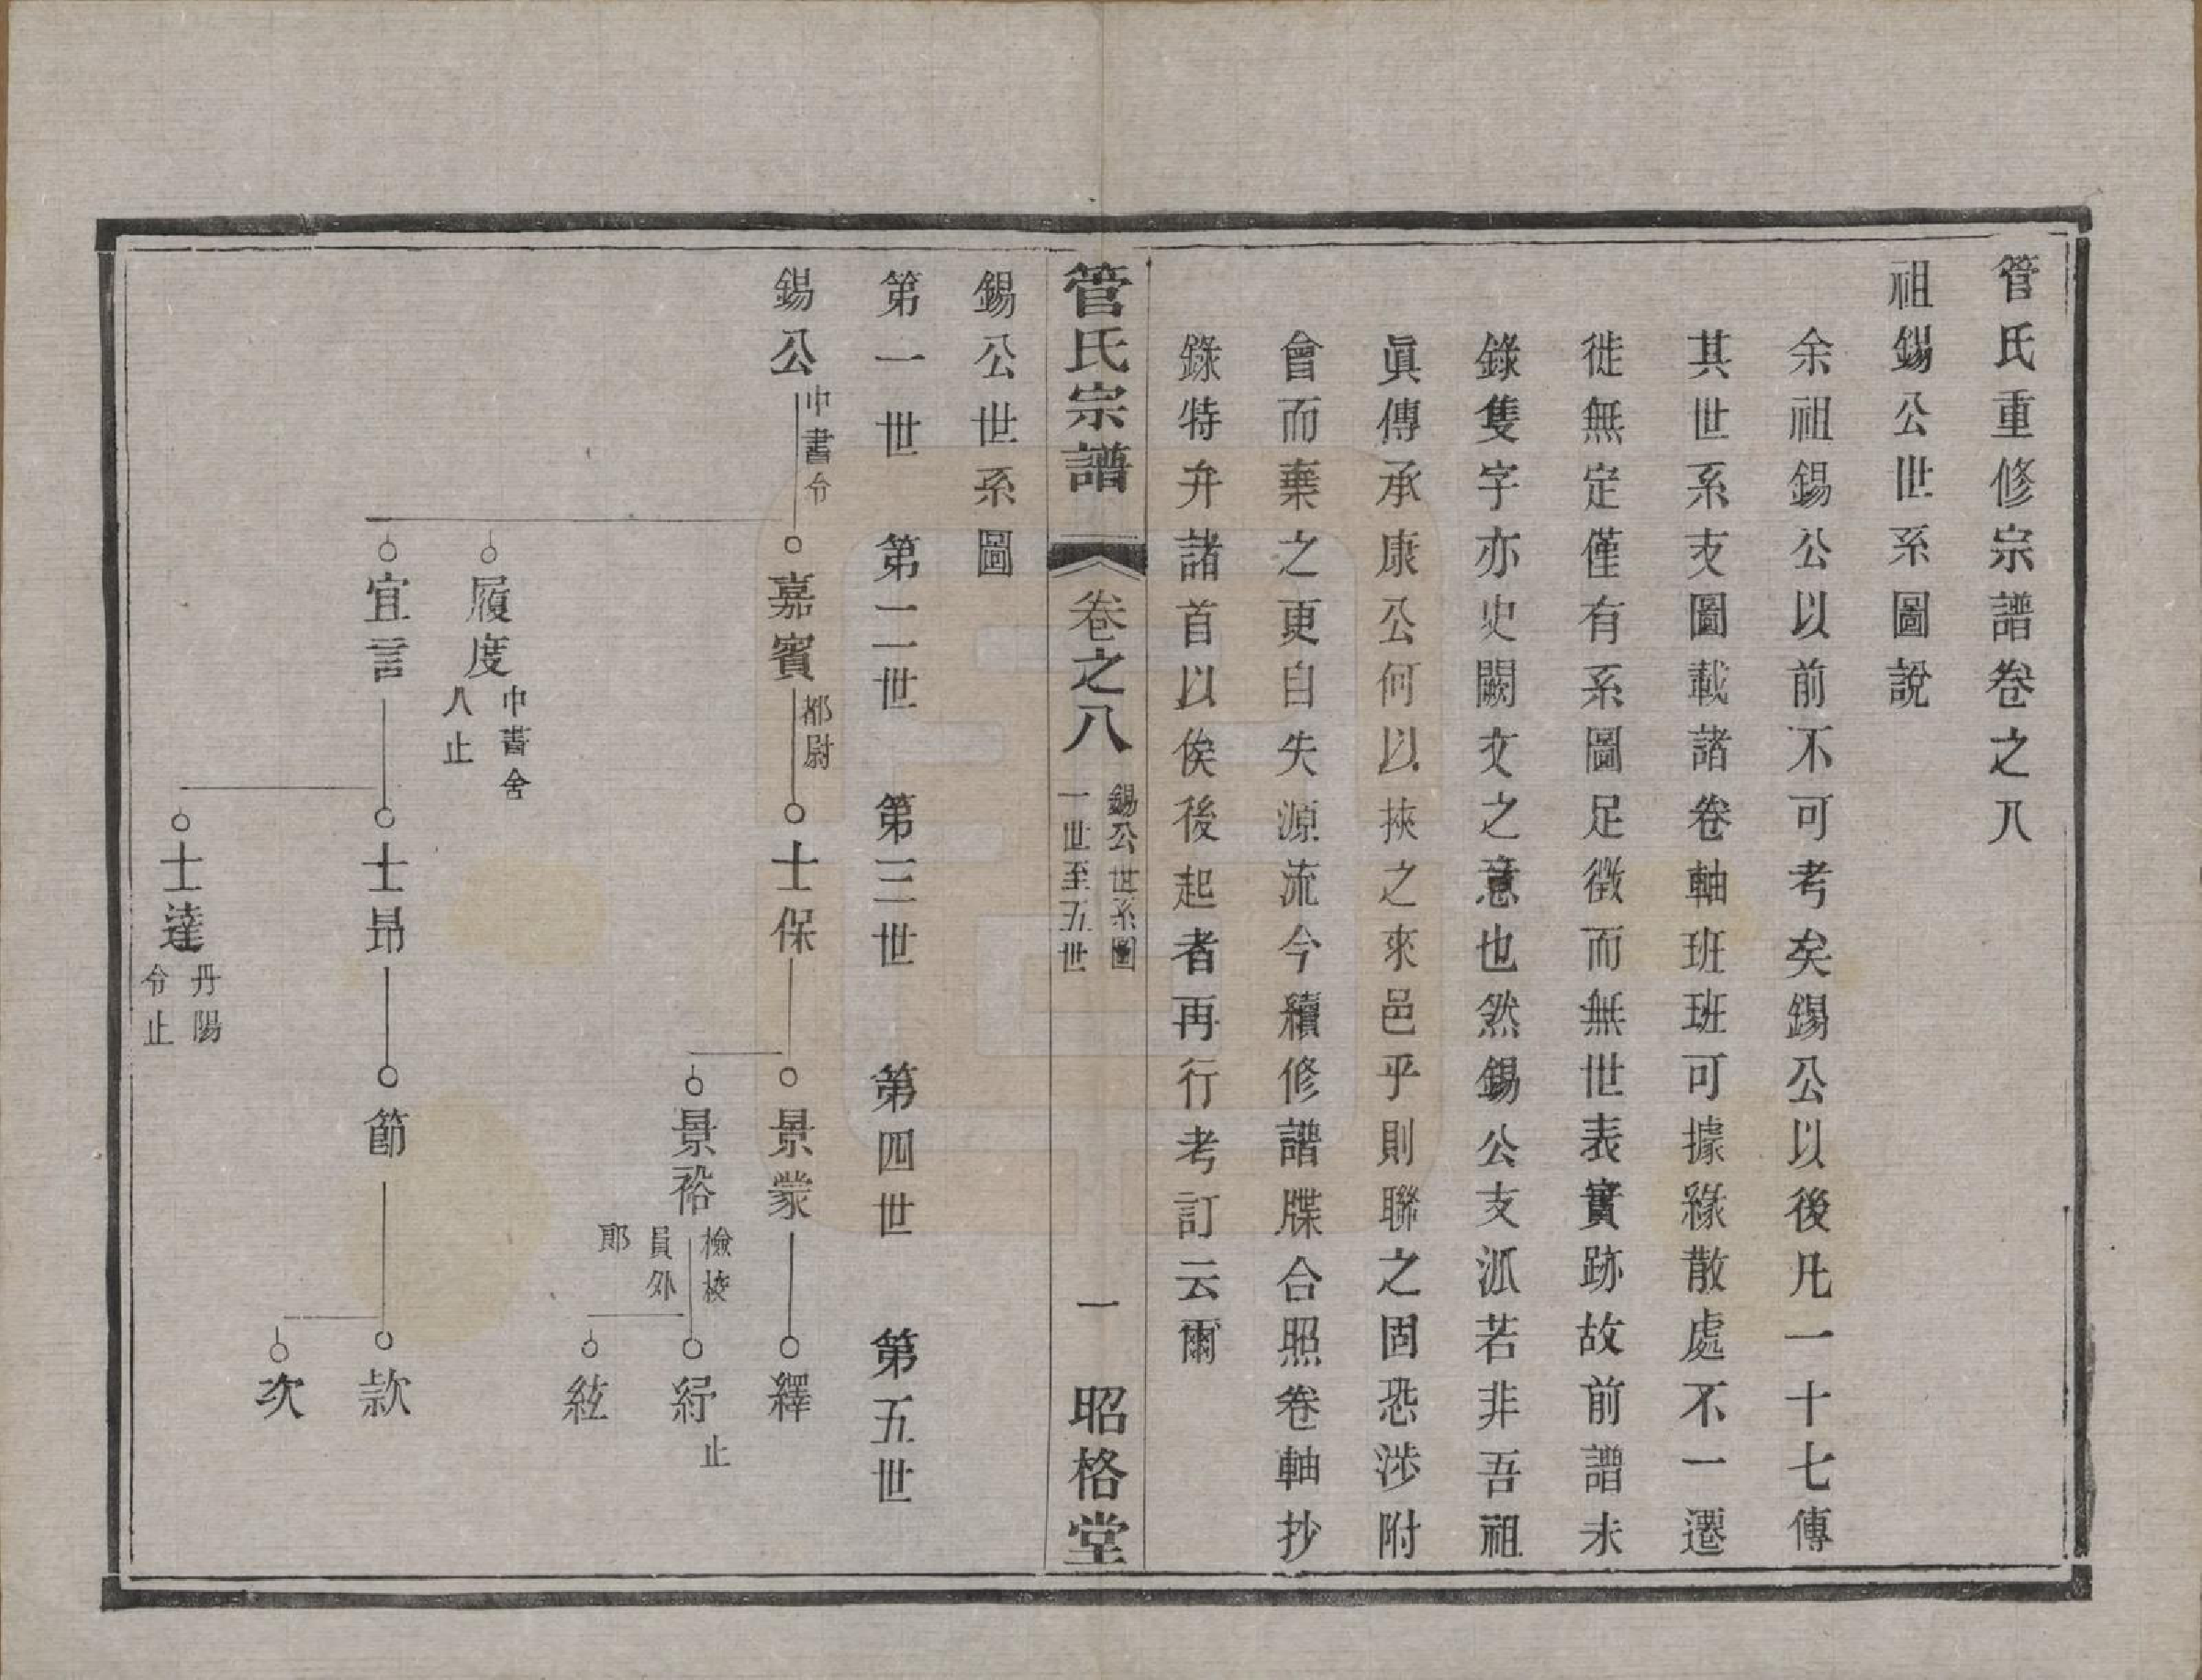 管氏重修宗譜卷之八
祖錫公世系圖說
余祖錫公以前不可考矣錫公以後凡一十七傳
其世系支圖載諸卷軸班班可據緣散處不一遷
徙無定僅有系圖足徵而無世表實跡故前譜未
錄隻字亦史闕文之意也然錫公支派若非吾祖
眞傳承康公何以挾之來邑乎則聯之固恐涉附
會而棄之更自失源流今續修譜牒合照卷軸抄
錄特弁諸首以俟後起者再行考訂云爾
管氏宗譜 卷之八 錫公世系圖 一世至五世 一 昭格堂
錫公世系圖
第一世 第二世 第三世 第四世 第五世
錫公 中書令 嘉賓 都尉 士保 景蒙 繹
景裕 檢校員外郎 紓 止
絃
履度 中書舍人止
宜言 士昻 節 款
次
士達 丹陽令止